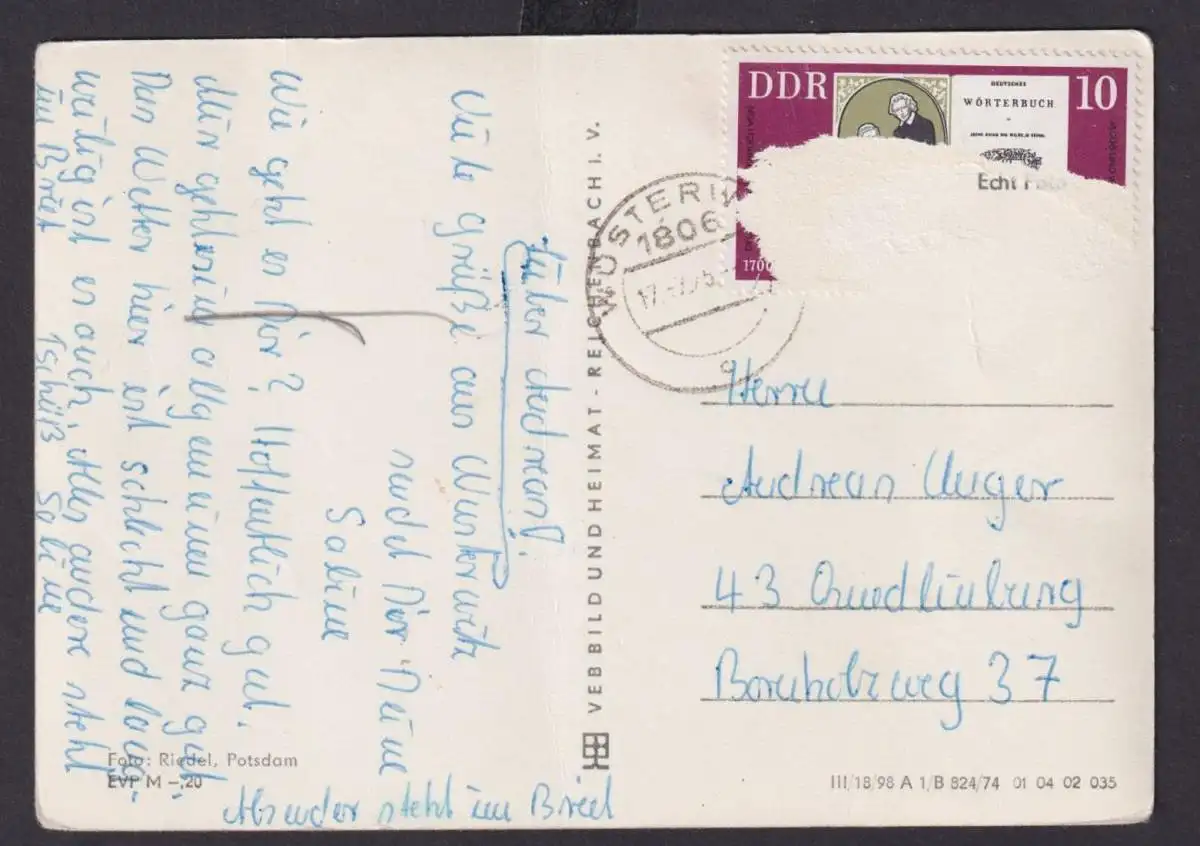 DDR
10
DEUTSCHES
WÖRTERBUCH
Echt Foto
WUSTERW
1806
17.
75
1700
Lieber Andreas!
Viele Grüße aus Wusterwitz
sendet Dir Deine
Sabine
Wie geht es Dir? Hoffentlich gut.
Mir geht es im allgemeinen ganz gut.
Das Wetter hier ist schlecht und lang-
weilig ist es auch. Alles andere steht
im Brief Tschüß Sabine
Absender steht im Brief
VEB BILD UND HEIMAT - REICHENBACH I. V.
Herrn
Andreas Unger
43 Quedlinburg
Bornholzweg 37
Foto: Riedel, Potsdam
EVP M -,20
III/18/98 A 1/B 824/74 01 04 02 035